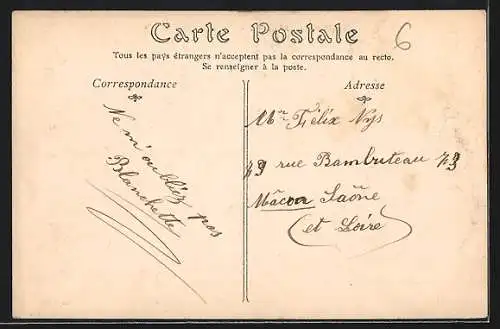 Carte Postale
6
Tous les pays étrangers n'acceptent pas la correspondance au recto.
Se renseigner à la poste.
Correspondance
Ne m'oubliez pas
Blanchette
Adresse
Mr Félix Nys
73 rue Rambuteau 73
Mâcon Saône
(et Loire)